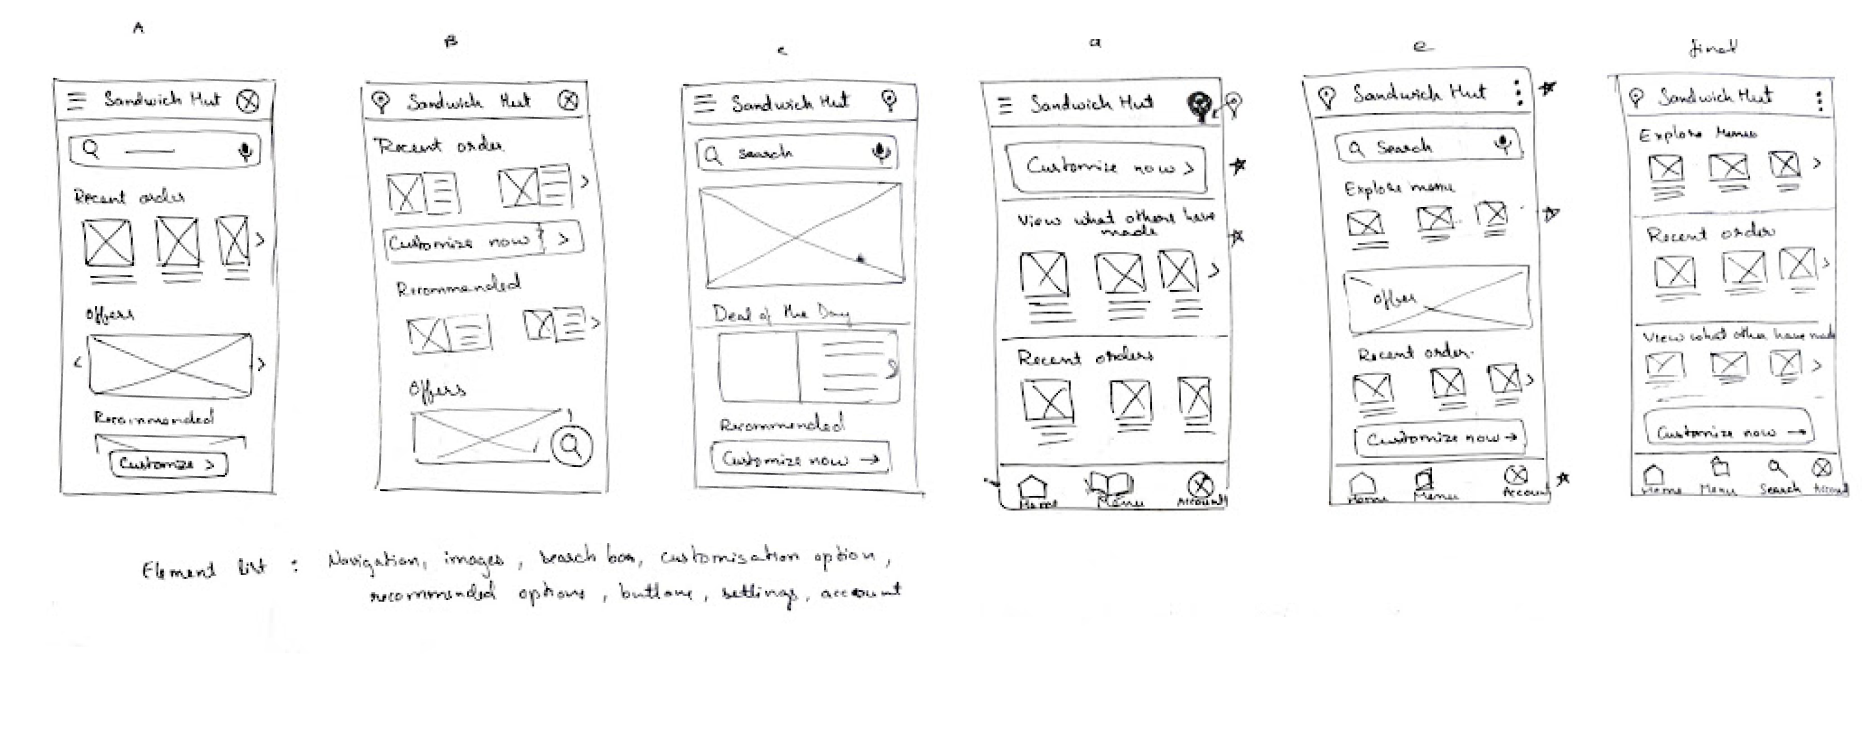 A
Sandwich Hut
Recent order
Offers
Recommended
Customize >
B
Sandwich Hut
Recent order
Customize now >
Recommended
Offers
c
Sandwich Hut
Search
Deal of the Day
Recommended
Customize now →
a
Sandwich Hut
Customize now >
View what others have
made
Recent orders
Home Menu Account
e
Sandwich Hut
Search
Explore menu
Offer
Recent order
Customize now →
Home Menu Account
final
Sandwich Hut
Explore Menu
Recent order
View what other have made
Customize now →
Home Menu Search Account
Element list : Navigation, images, search bar, customisation option,
recommended options, buttons, settings, account